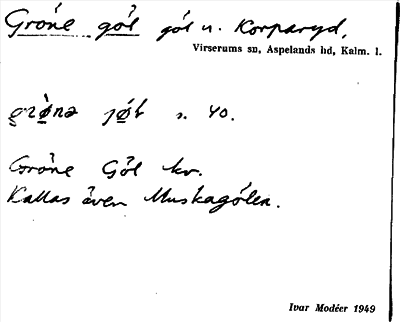 Gröne göl göl n. Korparyd,
Virserums sn, Aspelands hd, Kalm. l.
s. 40.
Gröne Göl kv.
Kallas även Muskagölen.
Ivar Modéer 1949